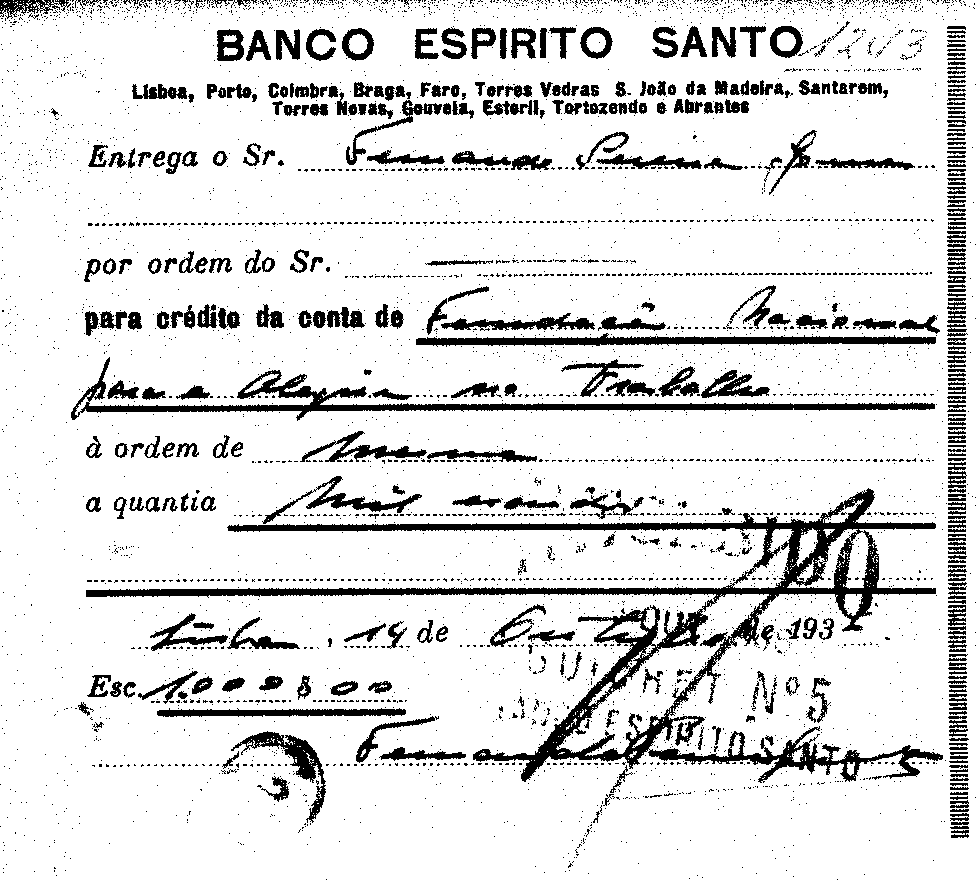 BANCO ESPIRITO SANTO 1203
Lisboa, Porto, Coimbra, Braga, Faro, Torres Vedras S. João da Madeira, Santarem,
Torres Novas, Gouveia, Estoril, Tortozendo e Abrantes
Entrega o Sr. Fernando
por ordem do Sr.
para crédito da conta de Fundação Nacional
para a Alegria no Trabalho
à ordem de mesma
a quantia Mil escudos
Lisboa, 14 de Outubro de 193
Esc. 1.000$00
GUICHET Nº 5
BANCO ESPIRITO SANTO